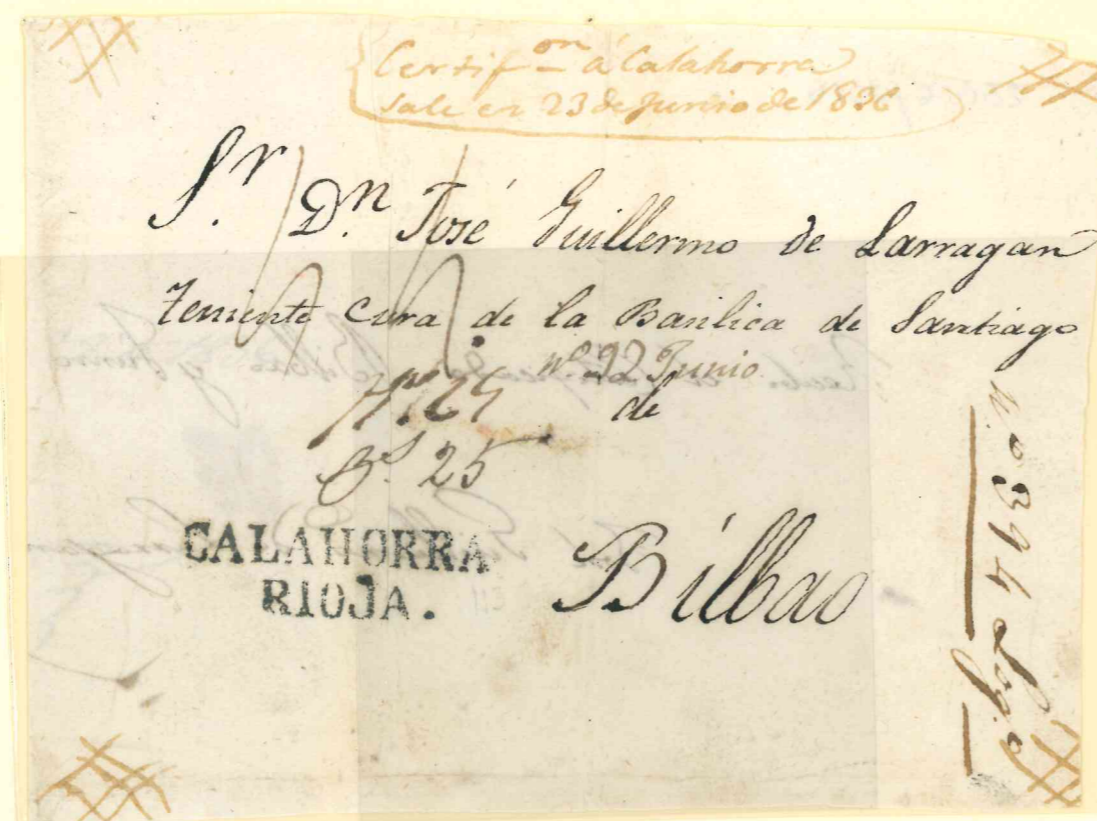 Certif.on á Calahorra
Sale en 23 de Junio de 1836
Sr. Dn. José Guillermo de Larragan
Teniente Cura de la Basilica de Santiago
no. 92 Junio
de
Bs. 25
CALAHORRA
RIOJA.
Bilbao
N.o 394